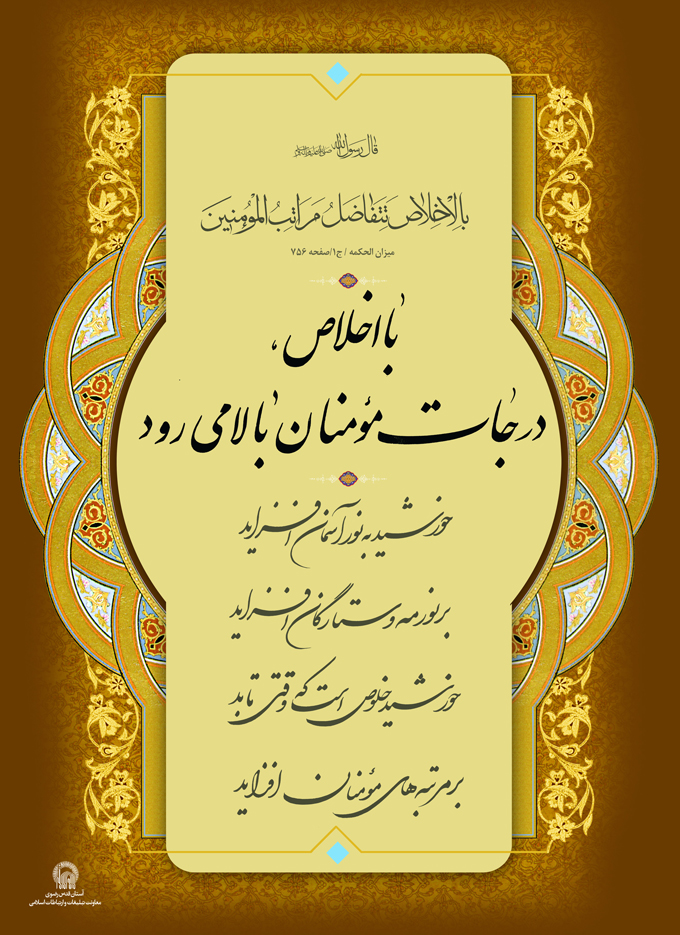 قال رسول الله صلی الله علیه و آله و سلم
بِالْاِخْلاصِ تَتَفاضَلُ مَراتِبُ الْمُؤمِنینَ
میزان الحکمه / ج۱/صفحه ۷۵۶
با اخلاص،
درجات مؤمنان بالا می رود
خورشید به نور آسمان افزاید
بر نور مه و ستارگان افزاید
خورشید خلوص است که وقتی تابد
بر مرتبه های مؤمنان افزاید
آستان قدس رضوی
معاونت تبلیغات و ارتباطات اسلامی